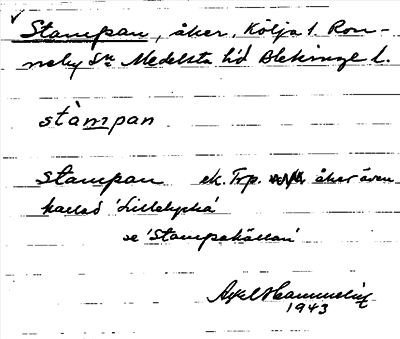 Stampan, åker, Kölja 1. Ron-
neby Sn Medelsta hd Blekinge l.
stàmpan
stampan ek. Trp. åker även
kallad 'Lillelyckå'
se 'Stampakällan'
Axel Hammelin
1943